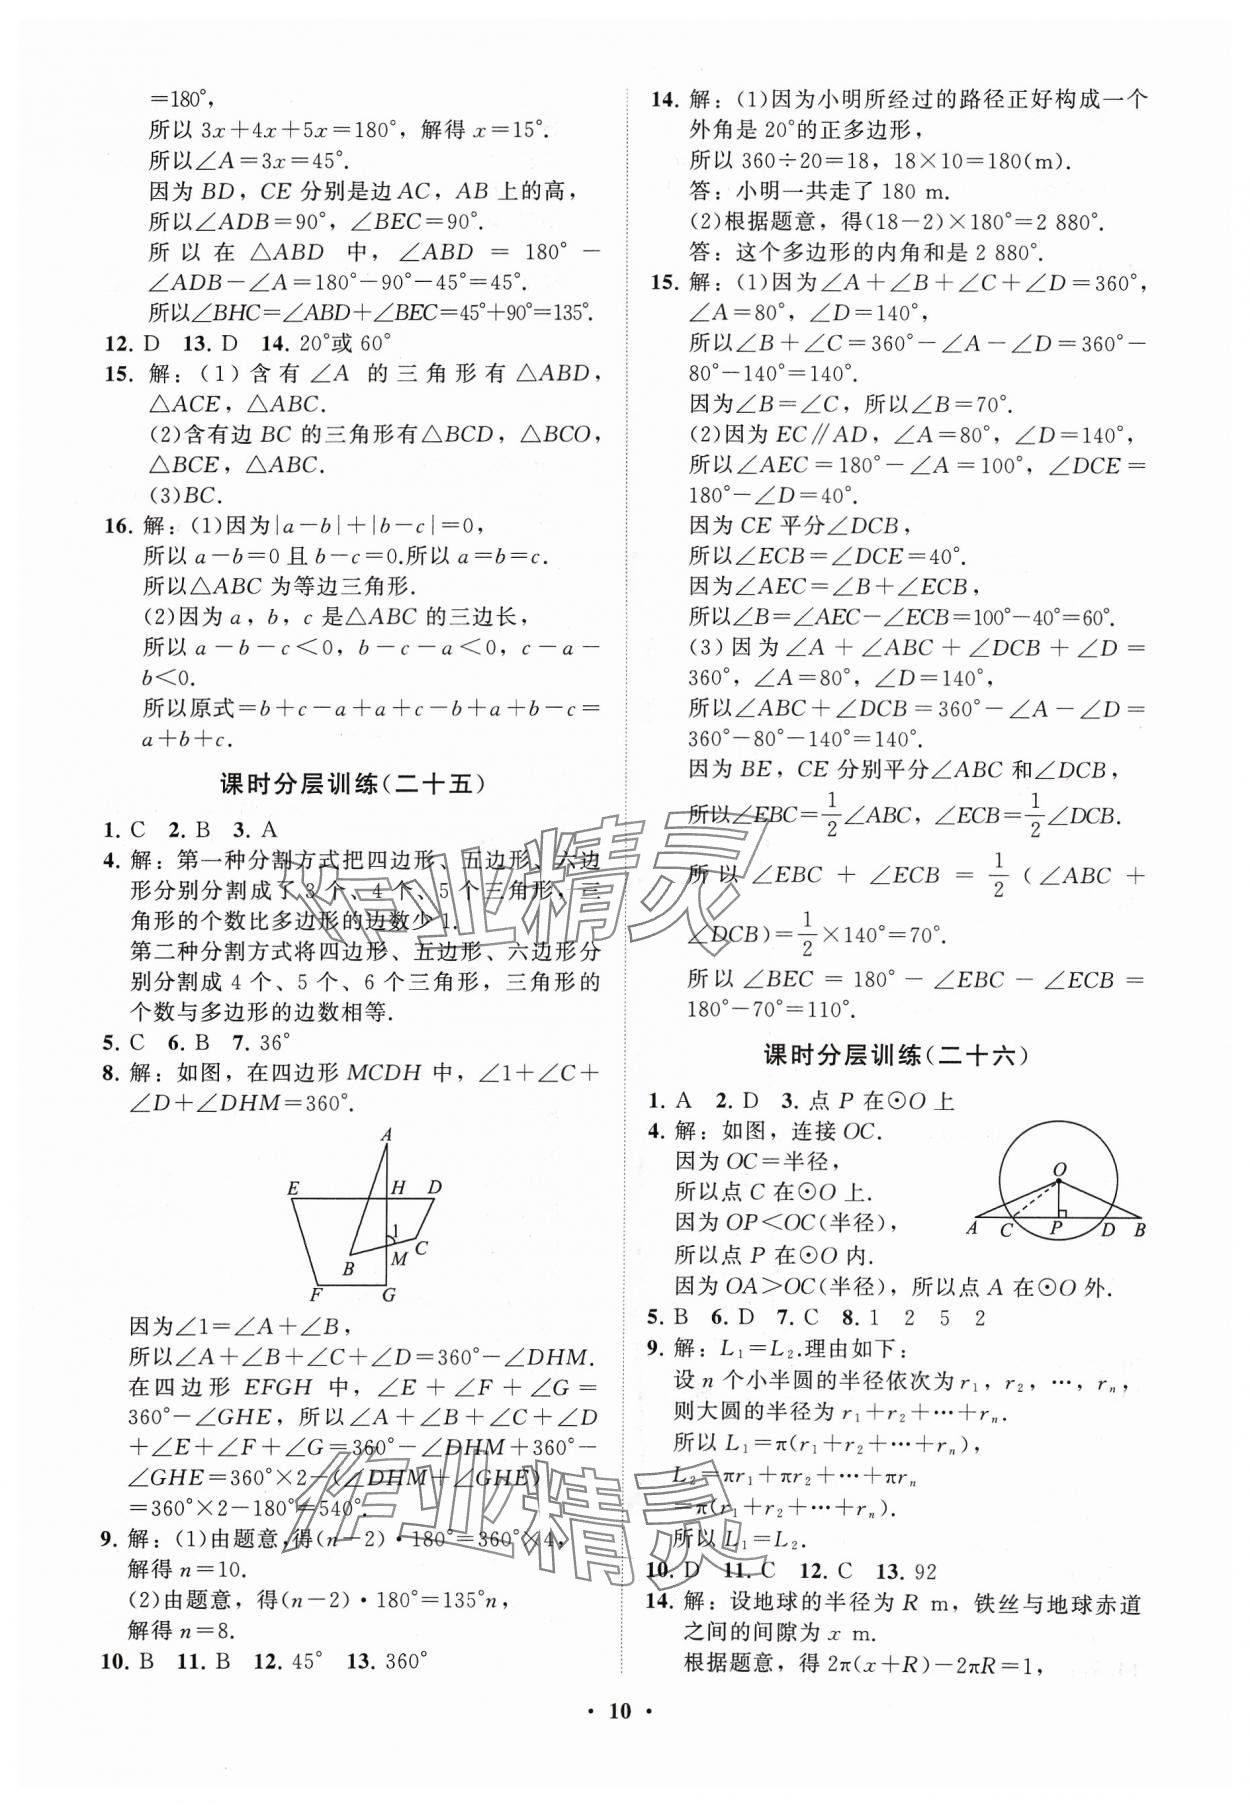 =180°,
所以 3x+4x+5x=180°, 解得 x=15°.
所以∠A=3x=45°.
因为 BD, CE 分别是边 AC, AB 上的高,
所以∠ADB=90°, ∠BEC=90°.
所以在 △ABD 中, ∠ABD = 180° −
∠ADB−∠A=180°−90°−45°=45°.
所以∠BHC=∠ABD+∠BEC=45°+90°=135°.
12. D 13. D 14. 20°或 60°
15. 解:(1)含有 ∠A 的三角形有 △ABD,
△ACE, △ABC.
(2)含有边 BC 的三角形有△BCD, △BCO,
△BCE, △ABC.
(3)BC.
16. 解:(1)因为|a−b|+|b−c|=0,
所以 a−b=0 且 b−c=0.所以 a=b=c.
所以△ABC 为等边三角形.
(2)因为 a, b, c 是△ABC 的三边长,
所以 a−b−c<0, b−c−a<0, c−a−
b<0.
所以原式=b+c−a+a+c−b+a+b−c=
a+b+c.
课时分层训练(二十五)
1. C 2. B 3. A
4. 解:第一种分割方式把四边形、五边形、六边
形分别分割成了 3 个、4 个、5 个三角形、三
角形的个数比多边形的边数少 1.
第二种分割方式将四边形、五边形、六边形分
别分割成 4 个、5 个、6 个三角形, 三角形的
个数与多边形的边数相等.
5. C 6. B 7. 36°
8. 解:如图, 在四边形 MCDH 中, ∠1+∠C+
∠D+∠DHM=360°.
A
E H D
1
C
B M
F G
因为∠1=∠A+∠B,
所以∠A+∠B+∠C+∠D=360°−∠DHM.
在四边形 EFGH 中, ∠E + ∠F + ∠G =
360°−∠GHE, 所以∠A+∠B+∠C+∠D
+∠E+∠F+∠G=360°−∠DHM+360°−
∠GHE=360°×2−(∠DHM+∠GHE)
=360°×2−180°=540°.
9. 解:(1)由题意,得(n−2)·180°=360°×4,
解得 n=10.
(2)由题意, 得(n−2)·180°=135°n,
解得 n=8.
10. B 11. B 12. 45° 13. 360°
14. 解:(1)因为小明所经过的路径正好构成一个
外角是 20°的正多边形,
所以 360÷20=18, 18×10=180(m).
答:小明一共走了 180 m.
(2)根据题意, 得(18−2)×180°=2 880°.
答:这个多边形的内角和是 2 880°.
15. 解:(1)因为∠A+∠B+∠C+∠D=360°,
∠A=80°, ∠D=140°,
所以∠B+∠C=360°−∠A−∠D=360°−
80°−140°=140°.
因为∠B=∠C, 所以∠B=70°.
(2)因为 EC∥AD, ∠A=80°, ∠D=140°,
所以∠AEC=180°−∠A=100°, ∠DCE=
180°−∠D=40°.
因为 CE 平分∠DCB,
所以∠ECB=∠DCE=40°.
因为∠AEC=∠B+∠ECB,
所以∠B=∠AEC−∠ECB=100°−40°=60°.
(3)因为∠A+∠ABC+∠DCB+∠D=
360°, ∠A=80°, ∠D=140°,
所以∠ABC+∠DCB=360°−∠A−∠D=
360°−80°−140°=140°.
因为 BE, CE 分别平分∠ABC 和∠DCB,
所以∠EBC=1/2∠ABC, ∠ECB=1/2∠DCB.
所以 ∠EBC + ∠ECB = 1/2 (∠ABC +
∠DCB)=1/2×140°=70°.
所以 ∠BEC = 180° − ∠EBC − ∠ECB =
180°−70°=110°.
课时分层训练(二十六)
1. A 2. D 3. 点 P 在⊙O 上
4. 解:如图, 连接 OC.
因为 OC=半径,
所以点 C 在⊙O 上.
因为 OP<OC(半径),
所以点 P 在⊙O 内.
因为 OA>OC(半径), 所以点 A 在⊙O 外.
O
A C P D B
5. B 6. D 7. C 8. 1 2 5 2
9. 解:L₁=L₂.理由如下:
设 n 个小半圆的半径依次为 r₁, r₂, …, rₙ,
则大圆的半径为 r₁+r₂+…+rₙ.
所以 L₁=π(r₁+r₂+…+rₙ),
L₂=πr₁+πr₂+…+πrₙ
=π(r₁+r₂+…+rₙ).
所以 L₁=L₂.
10. D 11. C 12. C 13. 92
14. 解:设地球的半径为 R m, 铁丝与地球赤道
之间的间隙为 x m.
根据题意, 得 2π(x+R)−2πR=1,
· 10 ·
作业精灵
作业精灵